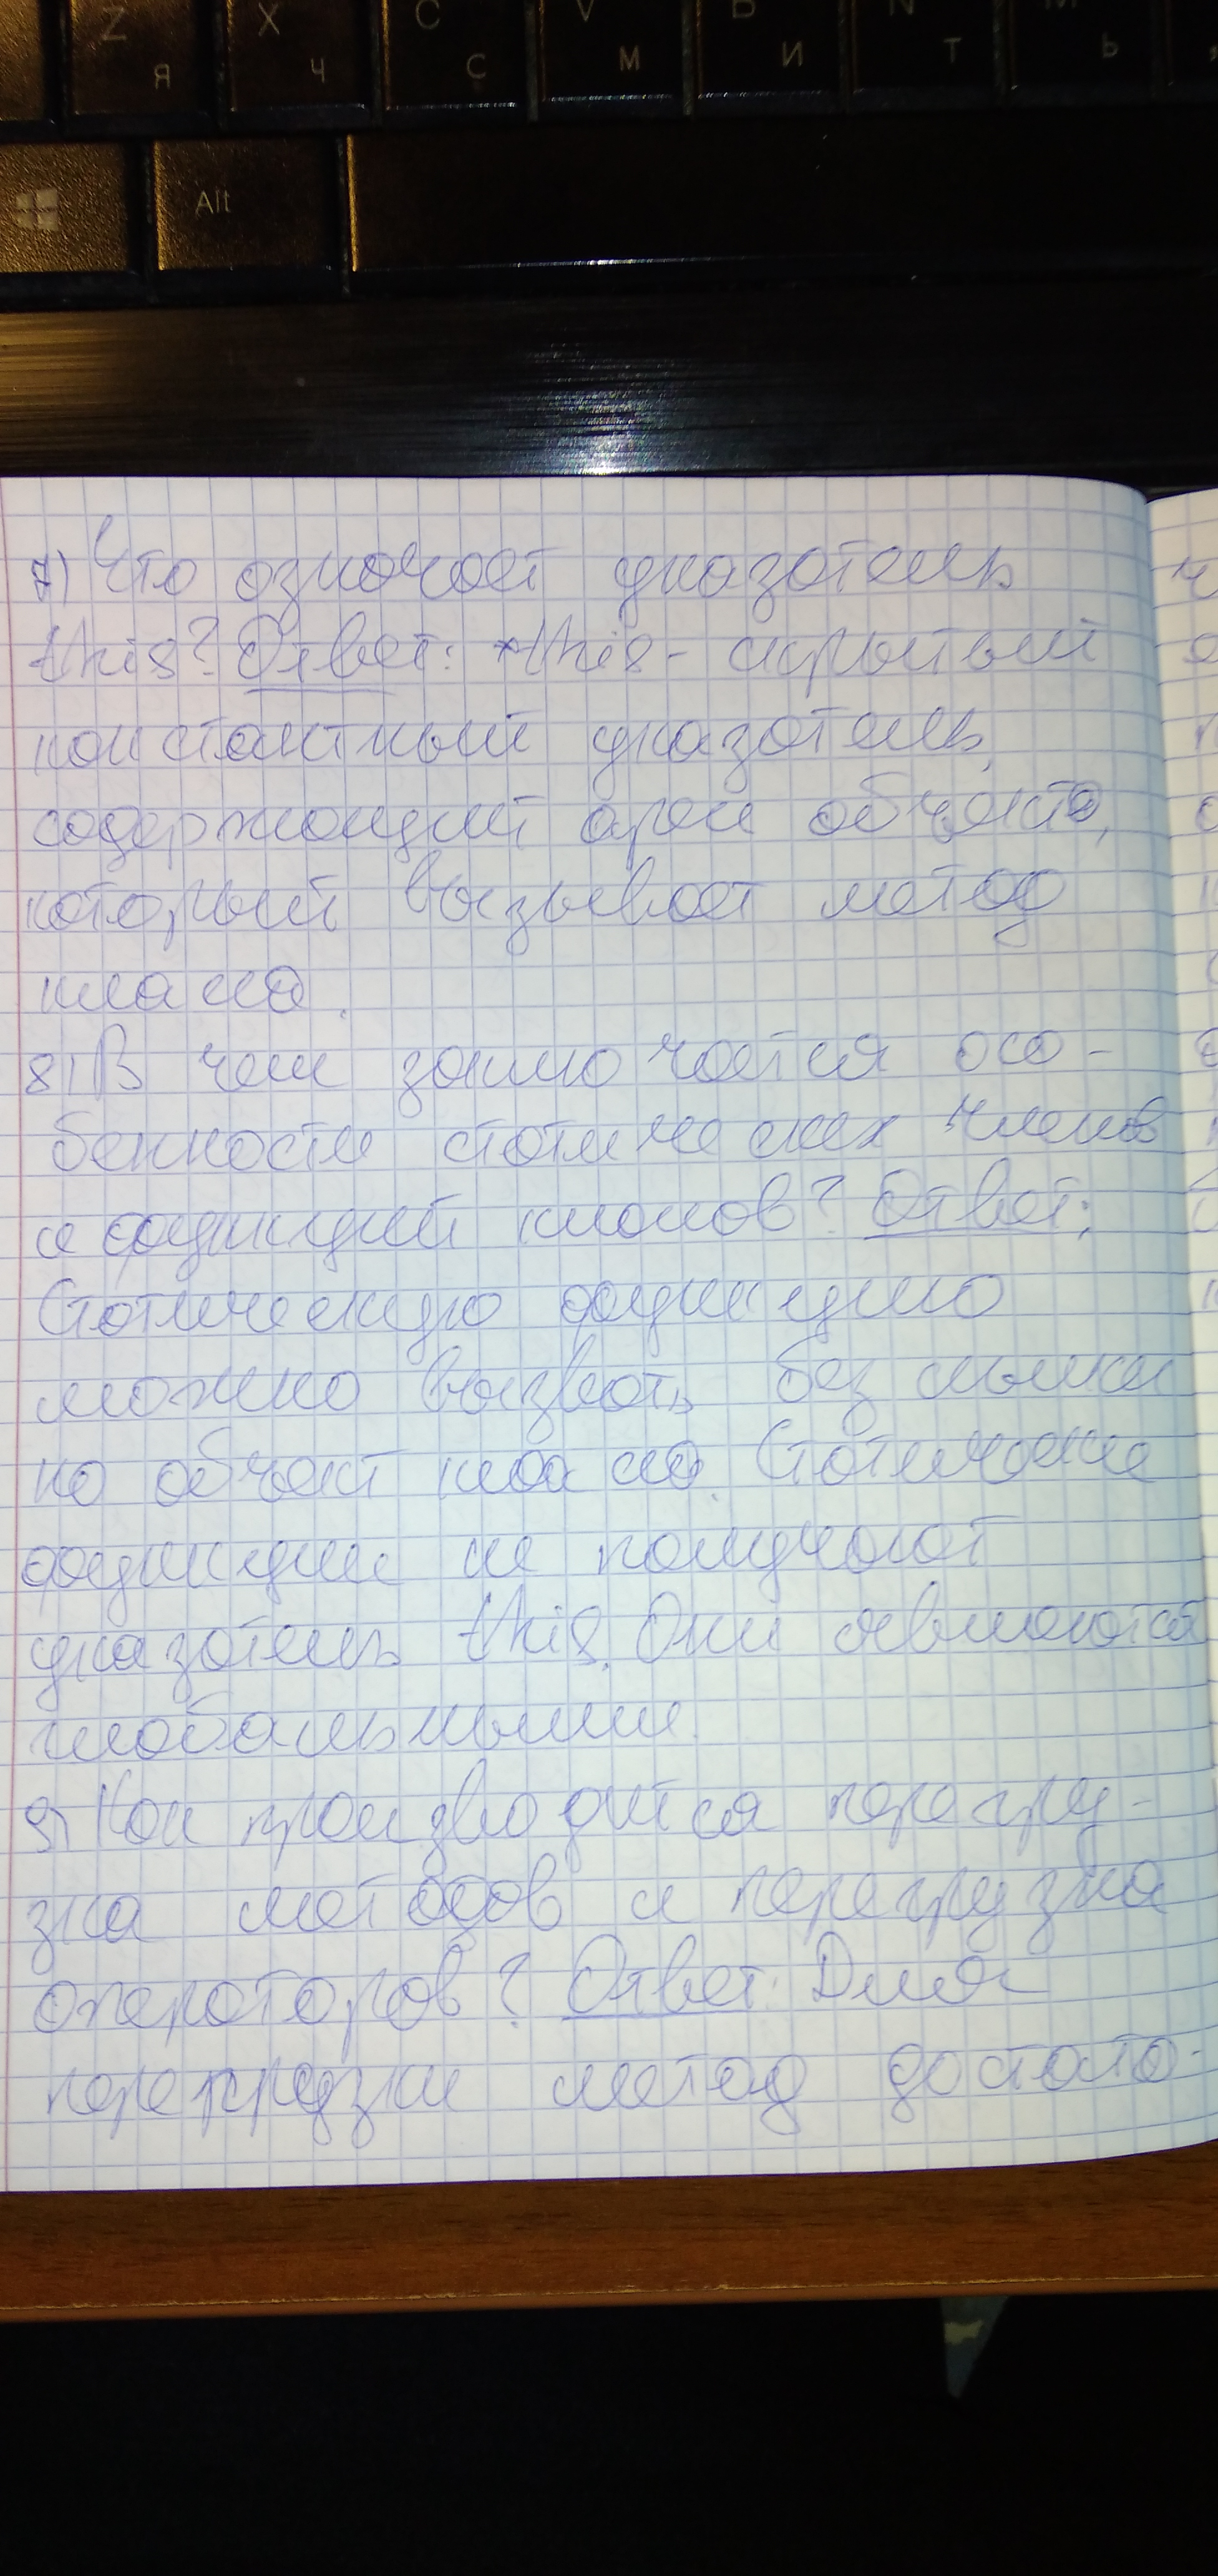 Z X C V B N M
Я Ч С М И Т Ь
Alt
7) Что означает указатель
this? Ответ: *this - скрытый
константный указатель,
содержащий адрес объекта,
который вызывает метод
класса.
8) В чем заключается осо-
бенности статических членов
и функций класов? Ответ:
Статическую функцию
можно вызвать без ссылки
на объект класса. Статические
функции не получают
указатель this. Они являются
глобальными.
9) Как производится перегру-
зка методов и перегрузка
операторов? Ответ: Для
перегрузки метод достато-